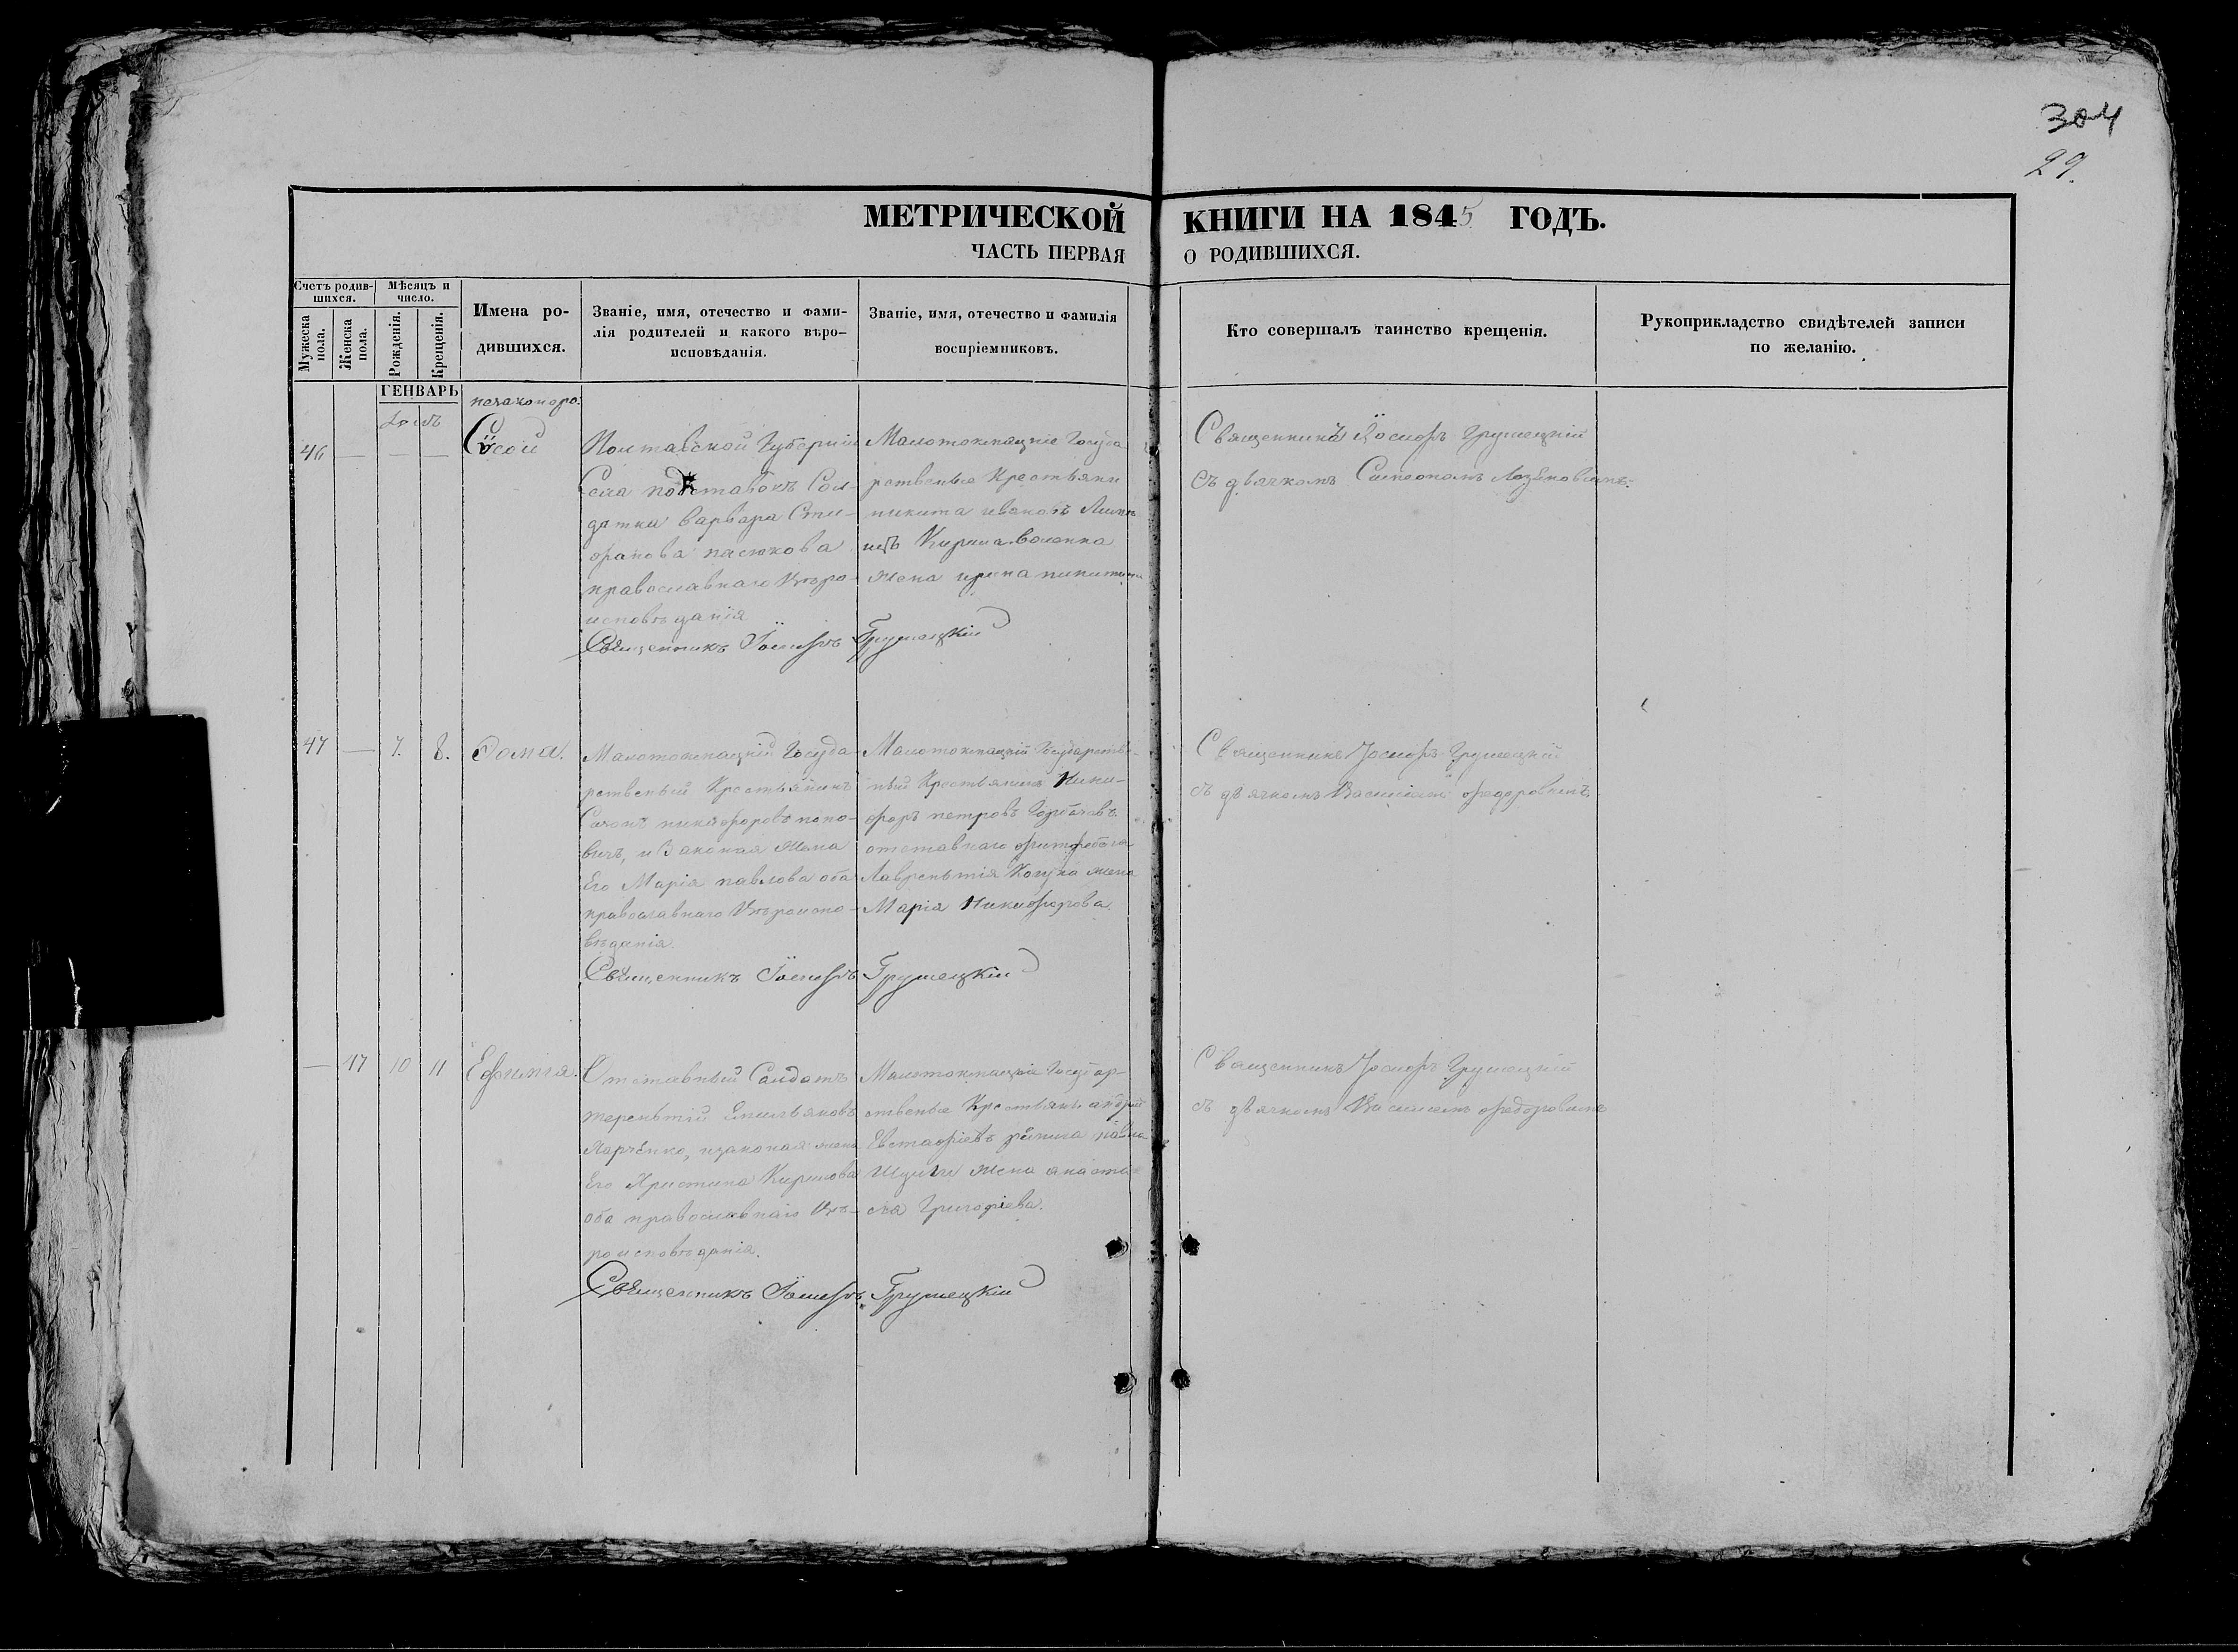 304
29.
МЕТРИЧЕСКОЙ КНИГИ НА 1845 ГОДЪ.
ЧАСТЬ ПЕРВАЯ О РОДИВШИХСЯ.
Счетъ родив-
шихся.
Мужеска
пола.
Женска
пола.
Мѣсяцъ и
число.
Рожденія.
Крещенія.
Имена ро-
дившихся.
Званіе, имя, отечество и фами-
лія родителей и какого вѣро-
исповѣданія.
Званіе, имя, отечество и фамилія
воспріемниковъ.
Кто совершалъ таинство крещенія.
Рукоприкладство свидѣтелей записи
по желанію.
ГЕНВАРЬ
46 — — —
незаконоро:
Сысой
Полтавской Губерніи
Села подставокъ Сол-
датки варвара Сте-
фанова пасюкова
православнаго Вѣро-
исповѣданія
Малотокмацкіе Госуда
рственные Крестьяни
никита ивановъ
Кирила
жена ирина никитина
Священникъ Іосифъ Грушецкій
Священникъ Іосифъ Грушецкій
съ дьячкомъ Симеономъ
47 — 7. 8. Фома.
Малотокмацкій Госуда
рственый Крестьянинъ
Созонъ никифоровъ попо-
вичъ, и Законая Жена
Его Марія павлова оба
православнаго Вѣроиспо-
вѣданія.
Малотокмацкій Государстве-
ный Крестьянинъ Ники-
форъ петровъ Горбачовъ
отставнаго
Лаврентія жена
Марія Никифорова.
Священникъ Іосифъ Грушецкій
Священникъ Іосифъ Грушецкій
съ дьячкомъ Василіемъ Федоровымъ
— 47 10 11 Ефимія.
Отставный Солдатъ
терентій Емильяновъ
Харченко, изаконая жена
Его Христина Кирилова
оба православнаго Вѣ-
роисповѣданія.
Малотокмацкіе Государ-
ственые Крестьяне андрей
Евстафіевъ рѣпила павла
жена анаста
сія Григоріева.
Священникъ Іосифъ Грушецкій
Священникъ Іосифъ Грушецкій
съ дьячкомъ Василіемъ Федоровымъ